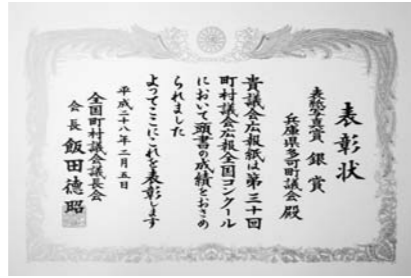 表彰状
表紙写真賞 銀賞
兵庫県多可町議会殿
貴議会広報紙は第三十回
町村議会広報全国コンクール
において頭書の成績をおさめ
られました
よってここにこれを表彰します
平成二十八年二月五日
全国町村議会議長会
会長 飯田徳昭